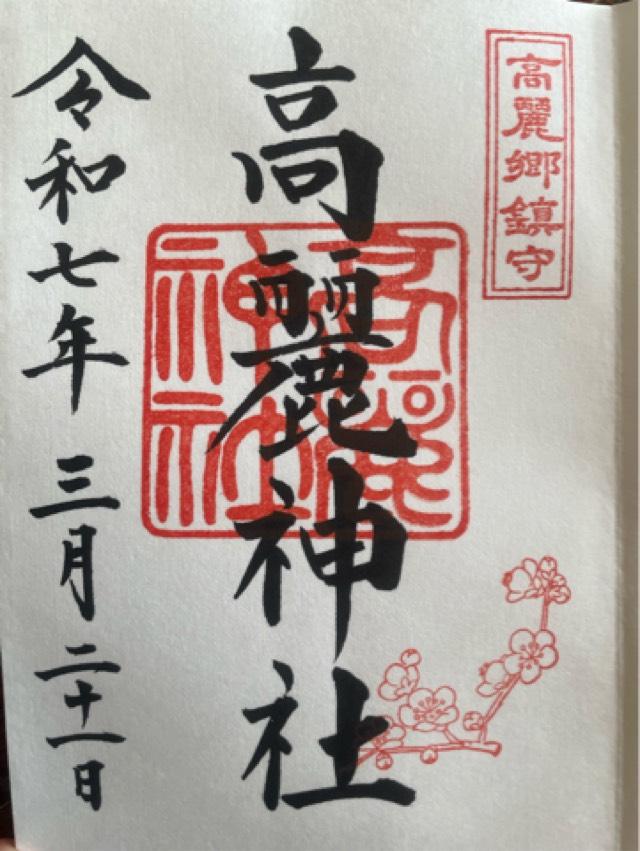 高麗郷鎮守
高麗神社
高麗神社
令和七年 三月 二十一日